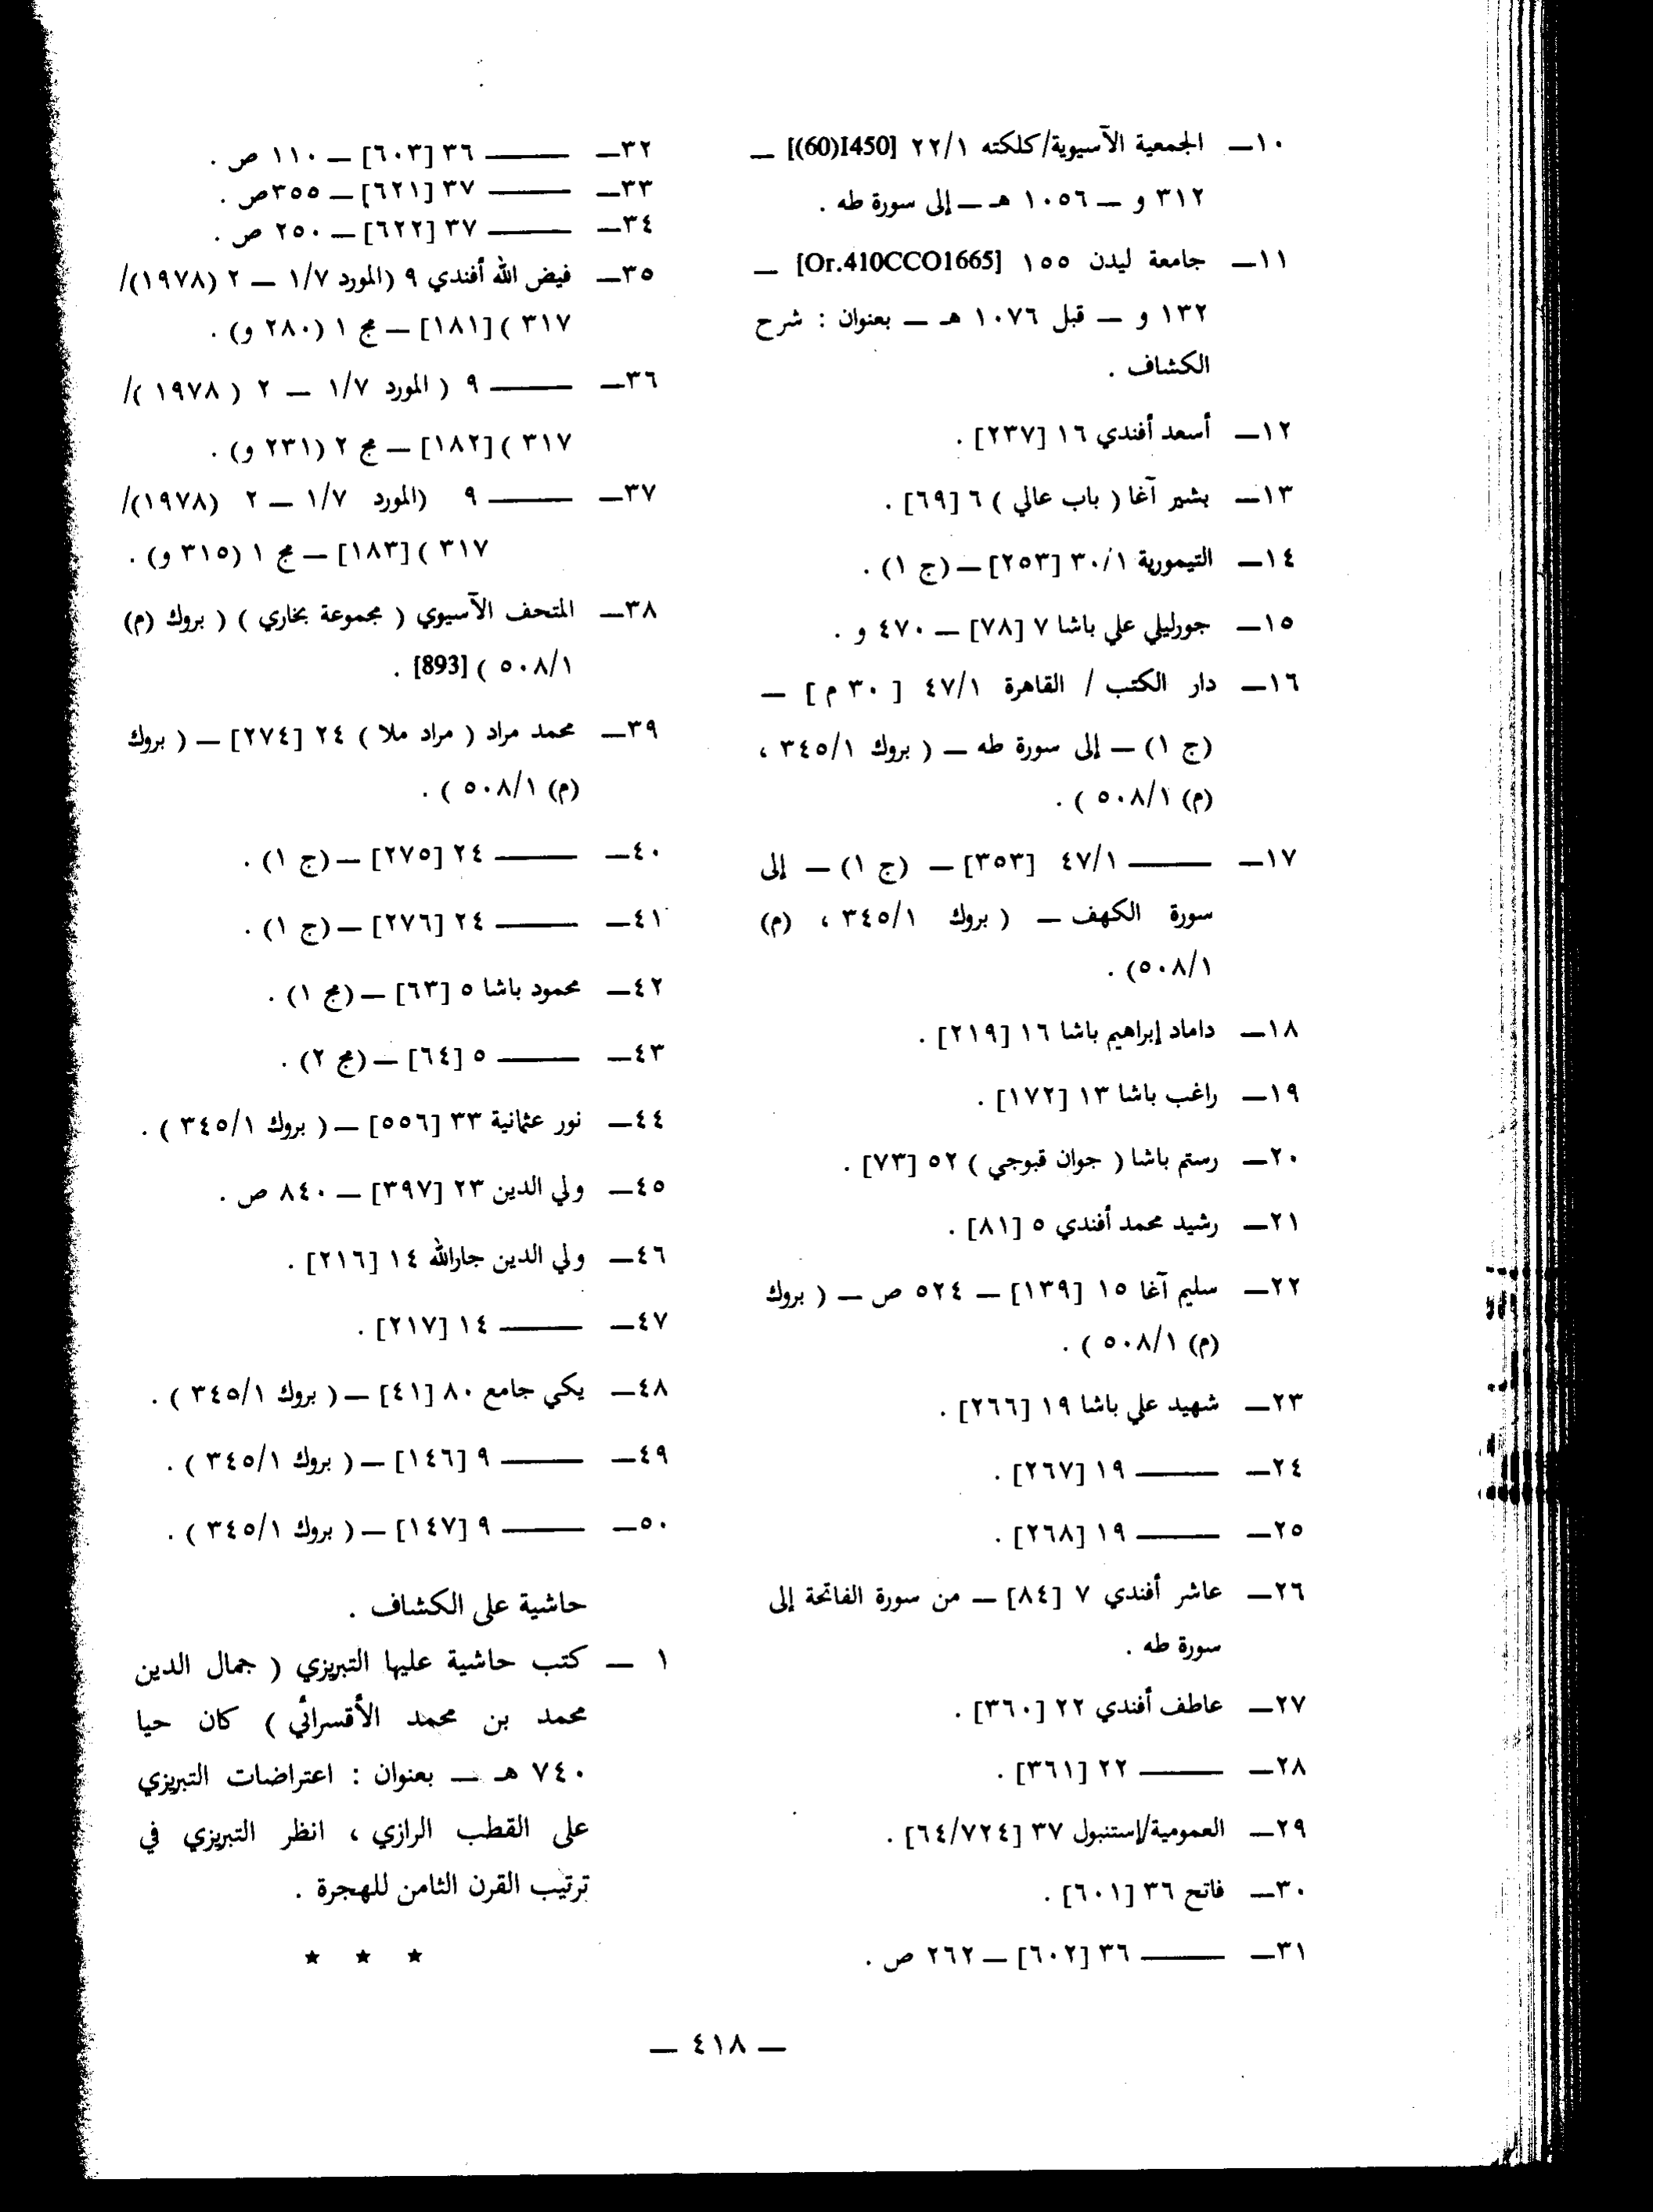 ١٠ــ الجمعية الآسيوية/كلكته ٢٢/١ [(60)I450)] ــ
٣١٢ و ــ ١٠٥٦ هـ ــ إلى سورة طه .
١١ــ جامعة ليدن ١٥٥ [Or.410CCO1665] ــ
١٣٢ و ــ قبل ١٠٧٦ هـ ــ بعنوان : شرح
الكشاف .
١٢ــ أسعد أفندي ١٦ [٢٣٧] .
١٣ــ بشير آغا ( باب عالي ) ٦ [٦٩] .
١٤ــ التيمورية ٣٠/١ [٢٥٣] ــ (ج ١) .
١٥ــ جورليلي علي باشا ٧ [٧٨] ــ ٤٧٠ و .
١٦ــ دار الكتب / القاهرة ٤٧/١ [ ٣٠ م ] ــ
(ج ١) ــ إلى سورة طه ــ ( بروك ٣٤٥/١ ،
(م) ٥٠٨/١ ) .
١٧ــ ــــــــ ٤٧/١ [٣٥٣] ــ (ج ١) ــ إلى
سورة الكهف ــ ( بروك ٣٤٥/١ ، (م)
٥٠٨/١) .
١٨ــ داماد إبراهيم باشا ١٦ [٢١٩] .
١٩ــ راغب باشا ١٣ [١٧٢] .
٢٠ــ رستم باشا ( جوان قبوجي ) ٥٢ [٧٣] .
٢١ــ رشيد محمد أفندي ٥ [٨١] .
٢٢ــ سليم آغا ١٥ [١٣٩] ــ ٥٢٤ ص ــ ( بروك
(م) ٥٠٨/١ ) .
٢٣ــ شهيد علي باشا ١٩ [٢٦٦] .
٢٤ــ ــــــــ ١٩ [٢٦٧] .
٢٥ــ ــــــــ ١٩ [٢٦٨] .
٢٦ــ عاشر أفندي ٧ [٨٤] ــ من سورة الفاتحة إلى
سورة طه .
٢٧ــ عاطف أفندي ٢٢ [٣٦٠] .
٢٨ــ ــــــــ ٢٢ [٣٦١] .
٢٩ــ العمومية/إستنبول ٣٧ [٦٤/٧٢٤] .
٣٠ــ فاتح ٣٦ [٦٠١] .
٣١ــ ــــــــ ٣٦ [٦٠٢] ــ ٢٦٢ ص .
٣٢ــ ــــــــ ٣٦ [٦٠٣] ــ ١١٠ ص .
٣٣ــ ــــــــ ٣٧ [٦٢١] ــ ٣٥٥ص .
٣٤ــ ــــــــ ٣٧ [٦٢٢] ــ ٢٥٠ ص .
٣٥ــ فيض الله أفندي ٩ (المورد ١/٧ ــ ٢ (١٩٧٨)/
٣١٧ )[١٨١] ــ مج ١ (٢٨٠ و) .
٣٦ــ ــــــــ ٩ ( المورد ١/٧ ــ ٢ ( ١٩٧٨ )/
٣١٧ )[١٨٢] ــ مج ٢ (٢٣١ و) .
٣٧ــ ــــــــ ٩ (المورد ١/٧ ــ ٢ (١٩٧٨)/
٣١٧ )[١٨٣] ــ مج ١ (٣١٥ و) .
٣٨ــ المتحف الآسيوي ( مجموعة بخاري ) ( بروك (م)
٥٠٨/١ )[893] .
٣٩ــ محمد مراد ( مراد ملا ) ٢٤ [٢٧٤] ــ ( بروك
(م) ٥٠٨/١ ) .
٤٠ــ ــــــــ ٢٤ [٢٧٥] ــ (ج ١) .
٤١ــ ــــــــ ٢٤ [٢٧٦] ــ (ج ١) .
٤٢ــ محمود باشا ٥ [٦٣] ــ (مج ١) .
٤٣ــ ــــــــ ٥ [٦٤] ــ (مج ٢) .
٤٤ــ نور عثمانية ٣٣ [٥٥٦] ــ ( بروك ٣٤٥/١ ) .
٤٥ــ ولي الدين ٢٣ [٣٩٧] ــ ٨٤٠ ص .
٤٦ــ ولي الدين جارالله ١٤ [٢١٦] .
٤٧ــ ــــــــ ١٤ [٢١٧] .
٤٨ــ يكي جامع ٨٠ [٤١] ــ ( بروك ٣٤٥/١ ) .
٤٩ــ ــــــــ ٩ [١٤٦] ــ ( بروك ٣٤٥/١ ) .
٥٠ــ ــــــــ ٩ [١٤٧] ــ ( بروك ٣٤٥/١ ) .
حاشية على الكشاف .
١ ــ كتب حاشية عليها التبريزي ( جمال الدين
محمد بن محمد الأقسرائي ) كان حيا
٧٤٠ هـ ــ بعنوان : اعتراضات التبريزي
على القطب الرازي ، انظر التبريزي في
ترتيب القرن الثامن للهجرة .
★ ★ ★
ــ ٤١٨ ــ